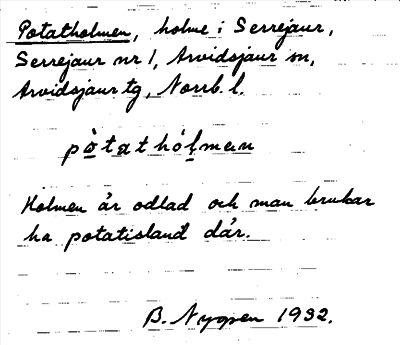 Potatholmen, holme i Serrejaur,
Serrejaur nr 1, Arvidsjaur sn,
Arvidsjaur tg, Norrb. l.
pòtathólmen
Holmen är odlad och man brukar
ha potatisland där.
B. Nygren 1932.